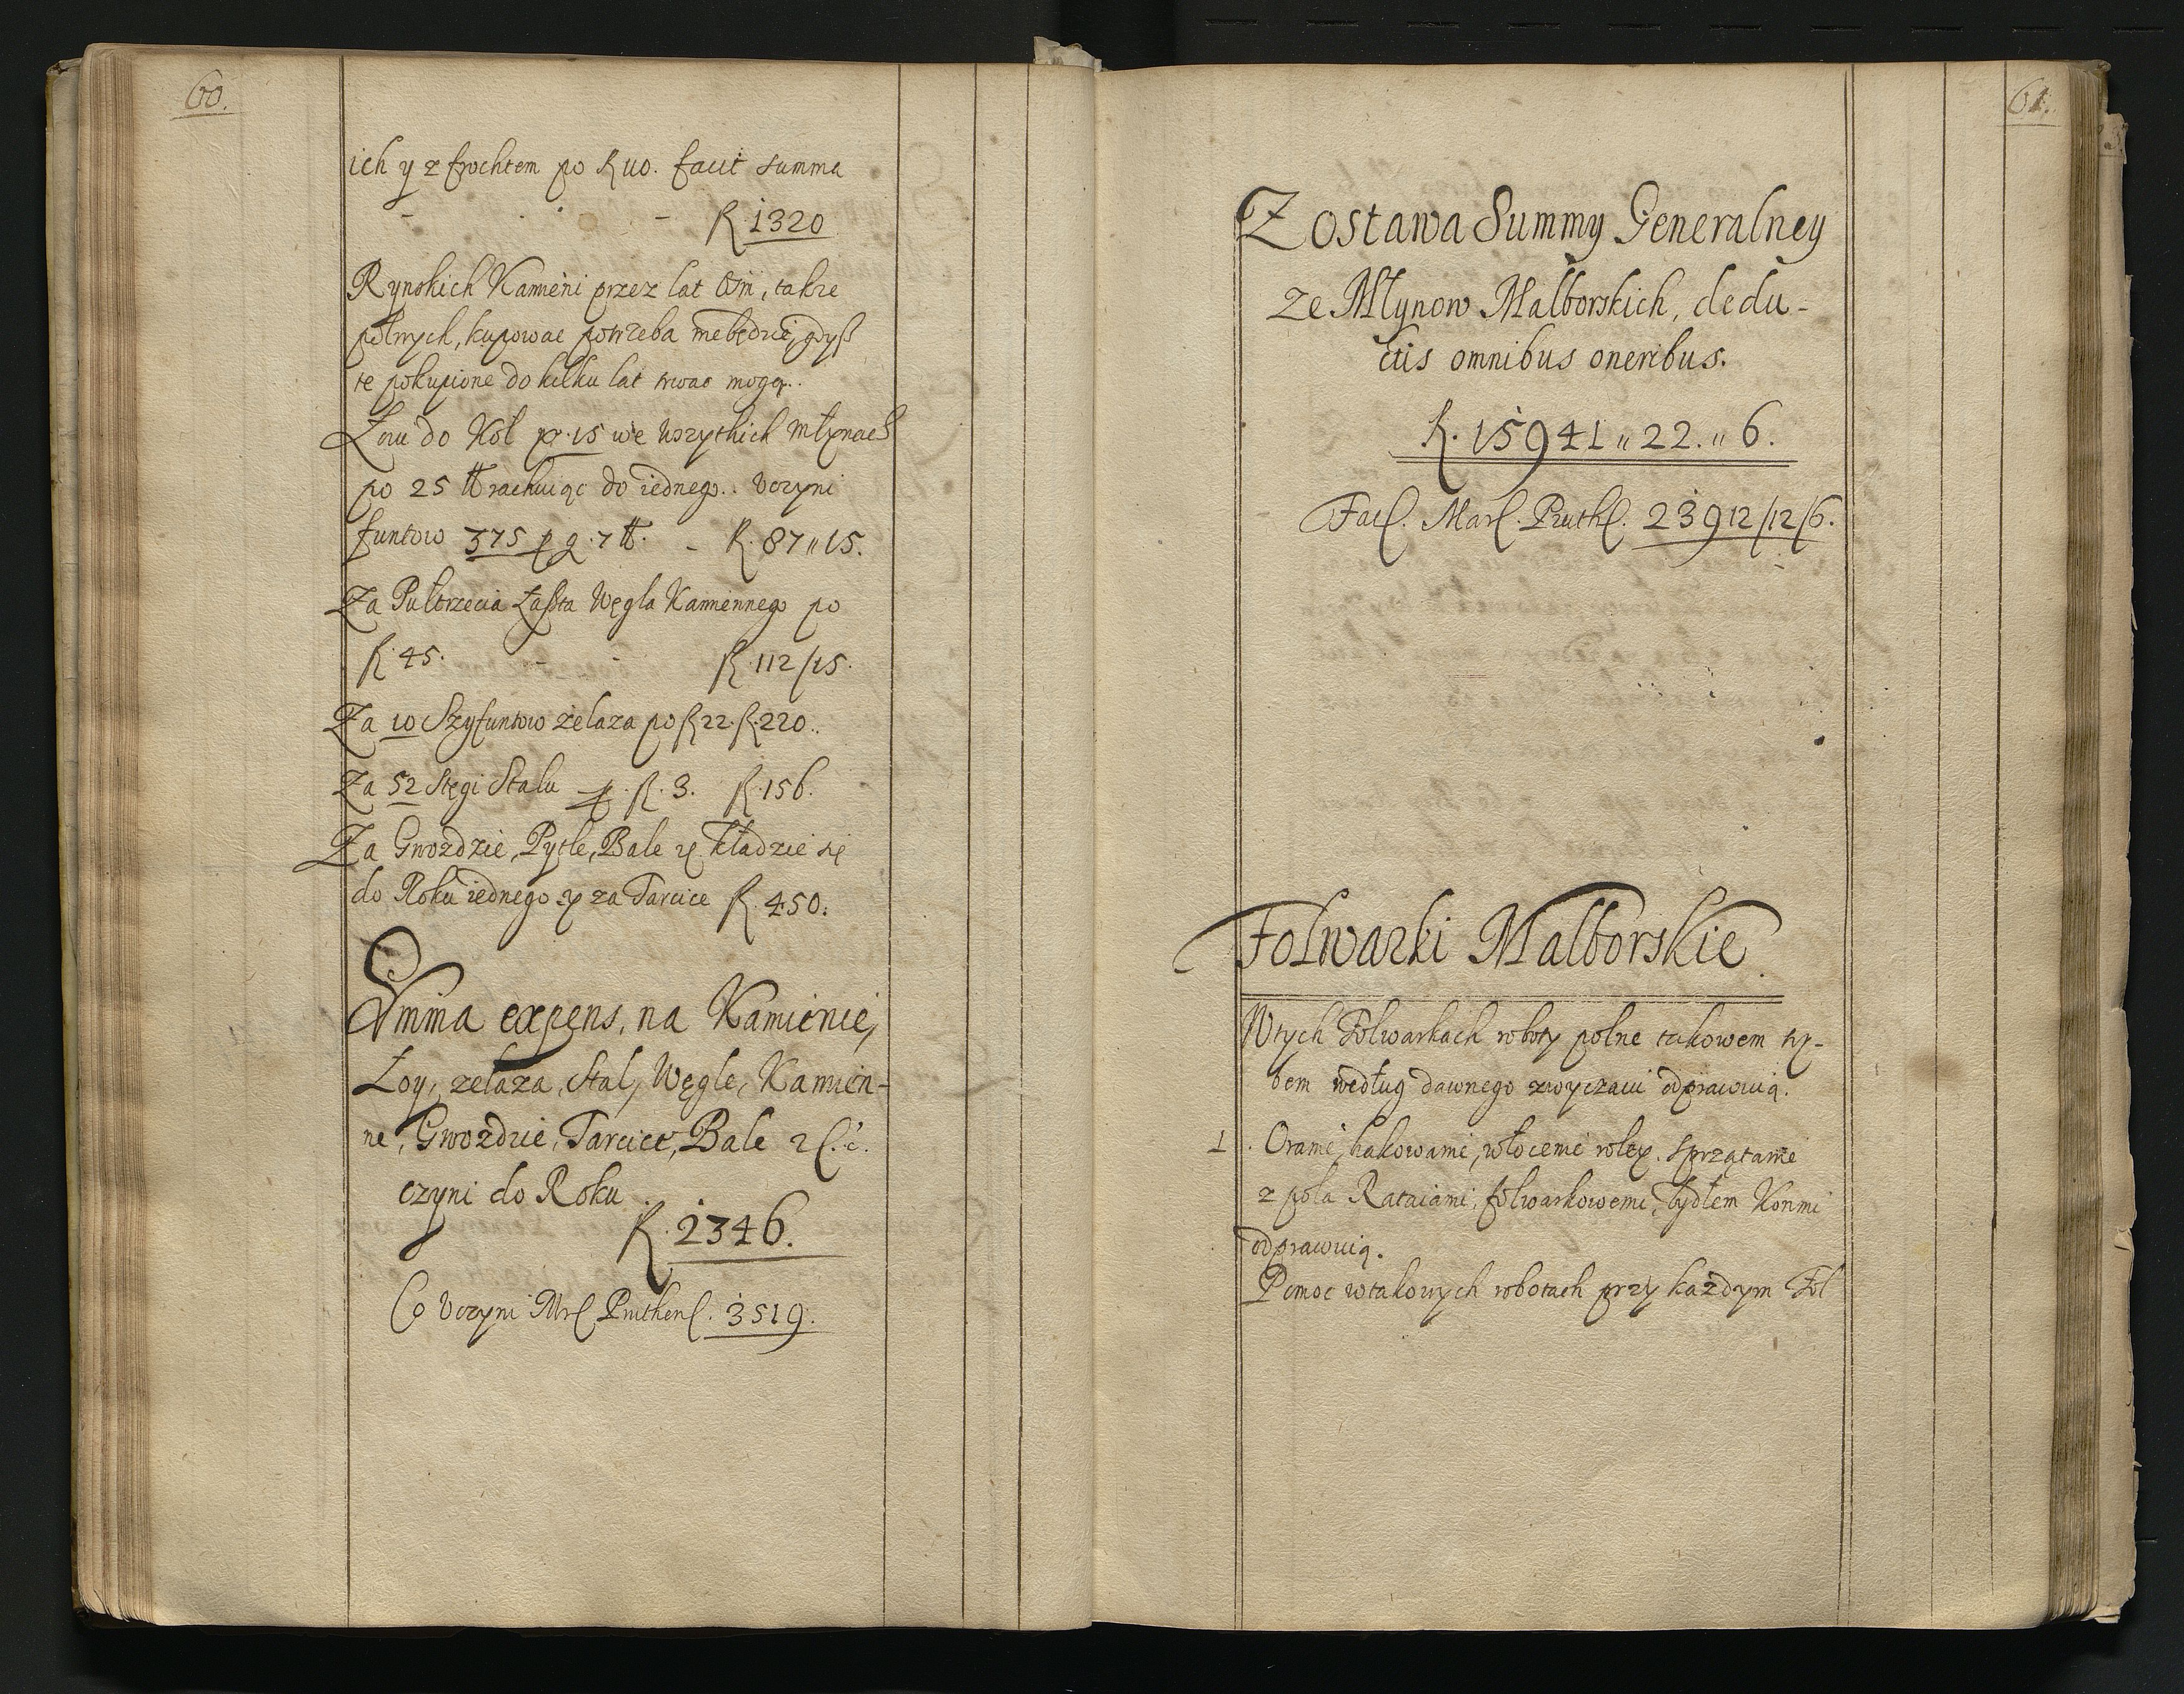 60.
ich y z frochtem po R 110. facit summa
- - R 1320
Rynskich Kamieni przez lat ośm, także
polnych, kupowac potrzeba niebędzie, gdyß
te pokupione do kilku lat trwac mogą.
Łoiu do Kół pr. 15 we wszytkich młynach
po 25 ℔ rachuiąc do iednego. Uczyni
funtow 375 p g. 7 ℔. - R. 87 ,, 15.
Za Pułtrzecia Łaßta Węgla Kamiennego po
R 45. - - R. 112/15.
Za 10 Szyfuntow żelaza po R 22. R. 220.
Za 52 Stęgi Stalu p. R. 3. R. 156.
Za Gwozdzie, Pytle, Bale etc kładzie się
do Roku iednego y za Tarcice R. 450.
Summa expens, na Kamienie,
Łoy, zelaza, Stal, Węgle, Kamien-
ne, Gwozdzie, Tarcice, Bale etc.
czyni do Roku
R. 2346.
Co Uczyni Mrl Pruthenl. 3519.
61.
Zostawa Summy Generalney
ze Młynow Malborskich, dedu-
ctis omnibus oneribus.
R. 15941 ,, 22. ,, 6.
Facl. Marl. Pruthl. 23912/12/6.
Folwarki Malborskie.
Wtych Folwarkach roboty polne takowem try-
bem według dawnego zwyczaiu odprawuią.
1. Oranie, hakowanie, włoczenie roley. Sprzątanie
z pola Rataiami, folwarkowemi, bydłem Konmi
odprawuią.
Pomoc wtakowych robotach przy każdym Fol